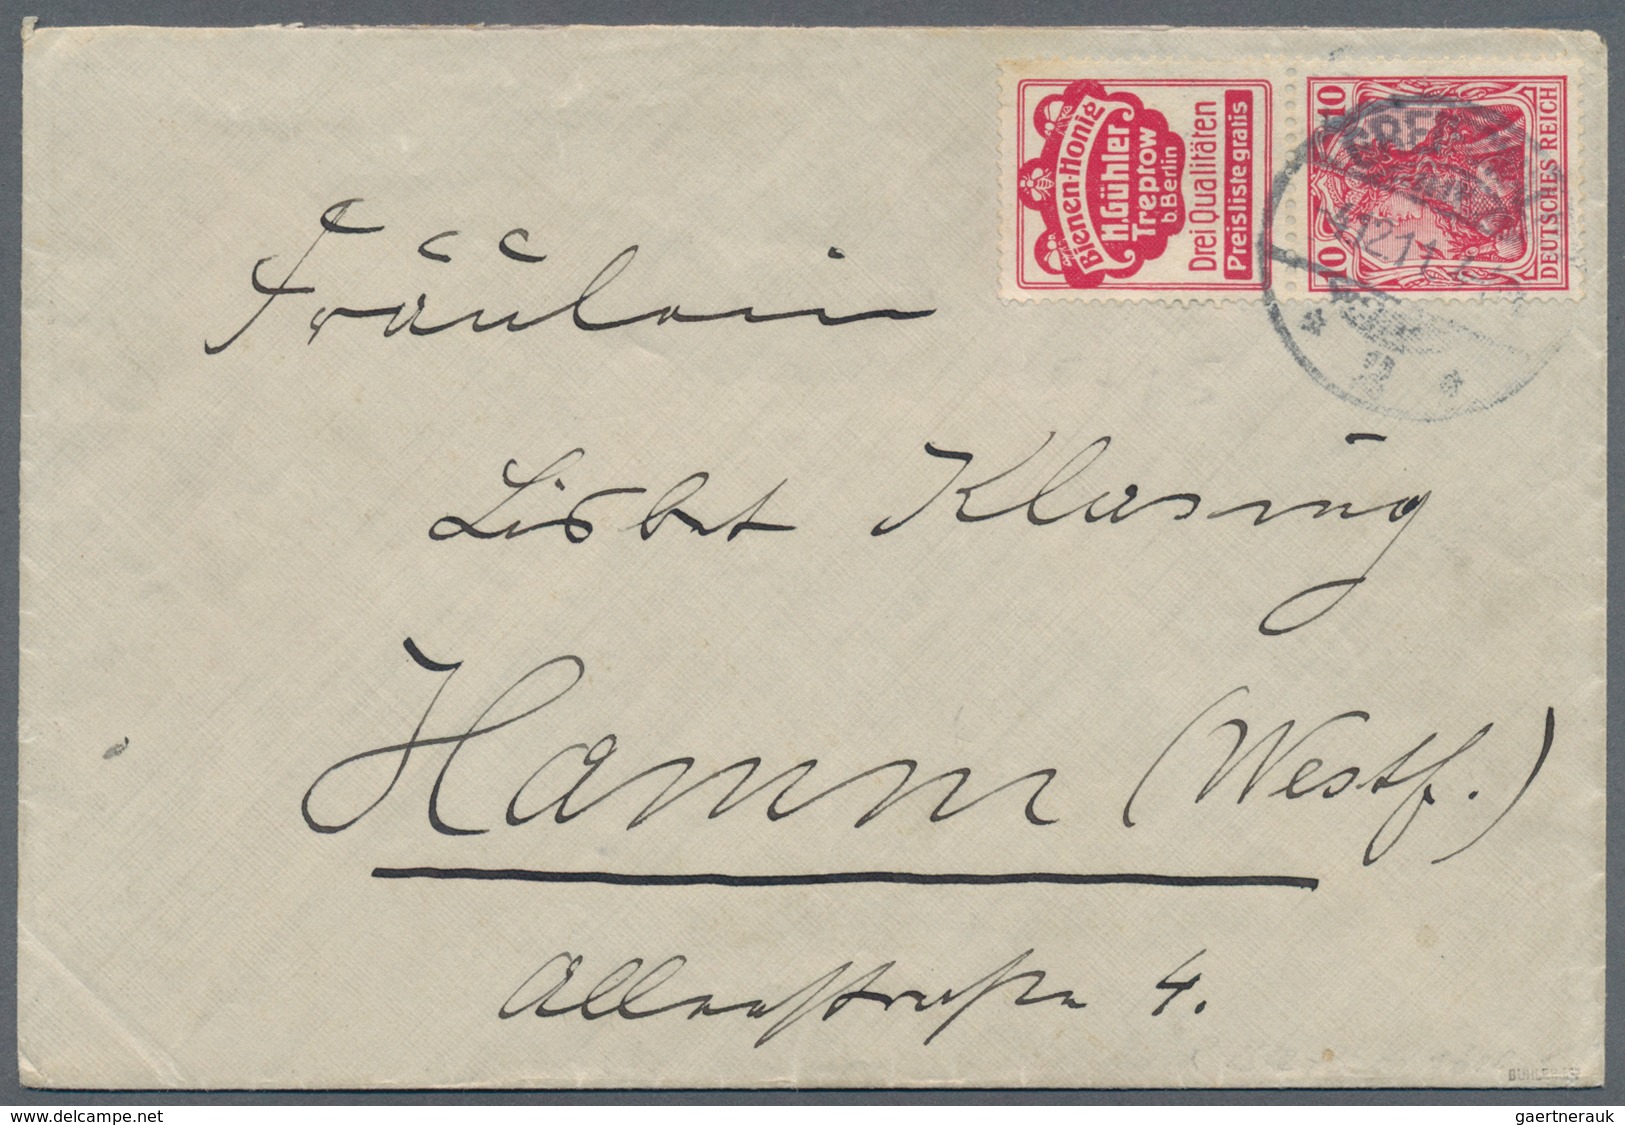 Bienen-Honig
H. Gühler
Treptow
b. Berlin
Drei Qualitäten
Preisliste gratis
10 10
DEUTSCHES REICH
Fräulein
Lisbet Klasing
Hamm (Westf.)
Alleestraße 4.
© www.delcampe.net
gaertnerauk